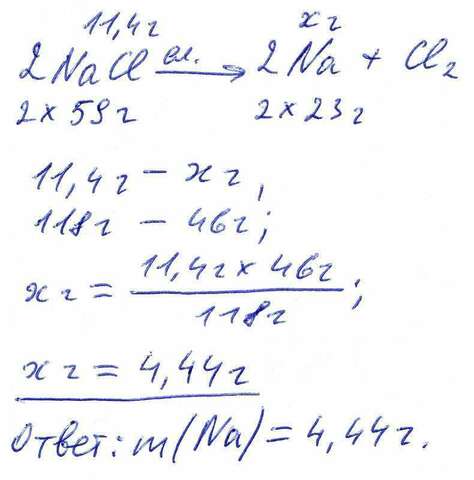 11,4г хг
2NaCl эл.→ 2Na + Cl₂
2×59г 2×23г
11,4г – хг,
118г – 46г;
хг = 11,4г × 46г / 118г;
хг = 4,44г
Ответ: m(Na) = 4,44г.